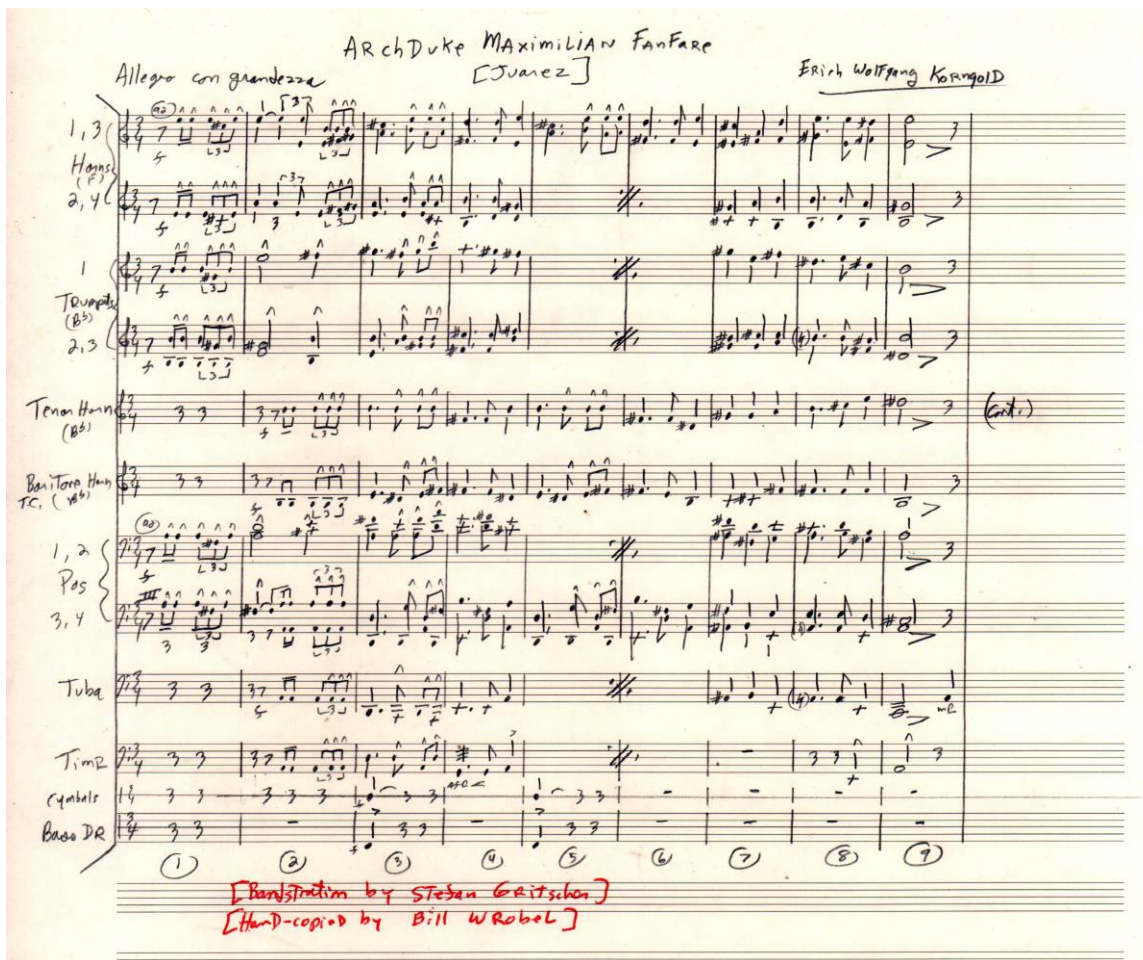 ARchDuke MAximiliAN FanFare
Allegro con grandezza [Juarez] Erich Wolfgang KorngolD
1, 3
Horns
(F)
2, 4
1
Trumpets
(Bb)
2, 3
Tenor Horn
(Bb)
(Cont.)
Baritone Horn
T.C. (Bb)
1, 2
Pos
3, 4
Tuba
Timp
Cymbals
Bass DR
1 2 3 4 5 6 7 8 9
[Bandstration by STefan GRitscher]
[HanD-copieD by Bill WRobel]